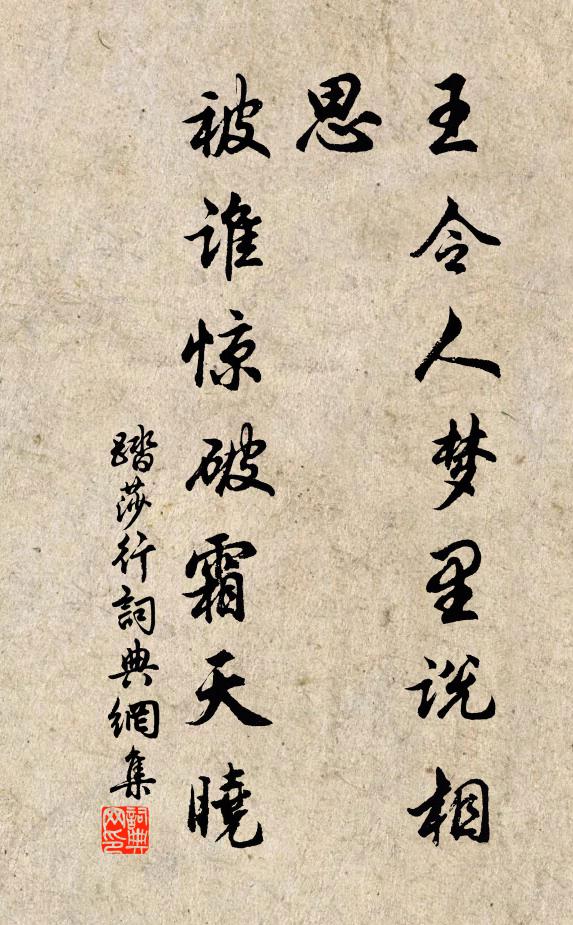 王令人梦里说相
思
被谁惊破霜天曉
踏莎行詞典網集
詞典
网印